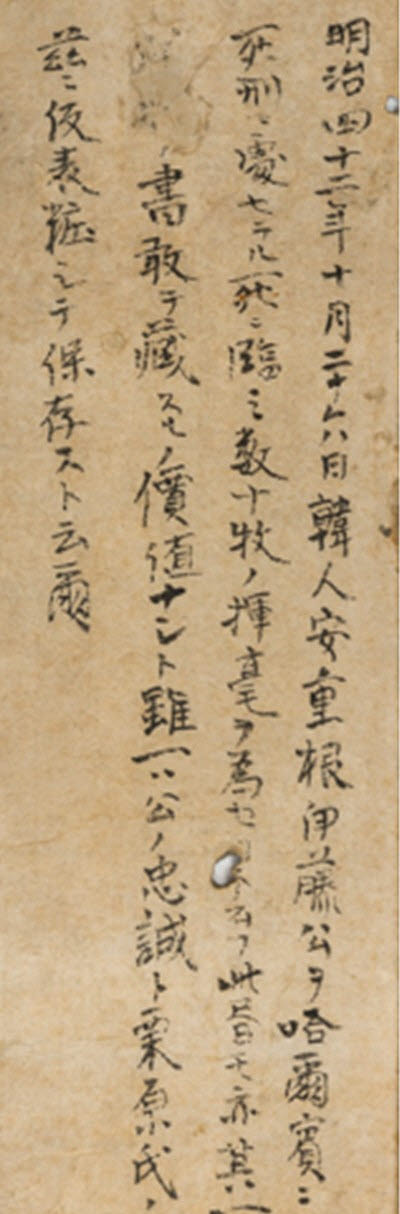 明治四十二年十月二十六日韓人安重根伊藤公ヲ哈爾賓ニ
死刑ニ處セラル死ニ臨ミ數十枚ノ揮毫ヲ為セ云フ此書モ亦其一
ノ書敢テ藏スルノ價値ナシト雖一ハ公ノ忠誠ト栗原氏ノ
茲ニ仮表粧シテ保存スト云爾